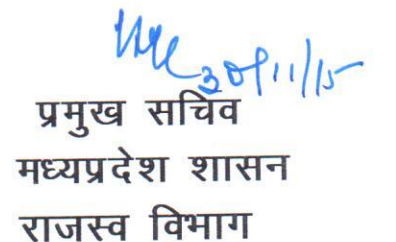 30/11/15
प्रमुख सचिव
मध्यप्रदेश शासन
राजस्व विभाग